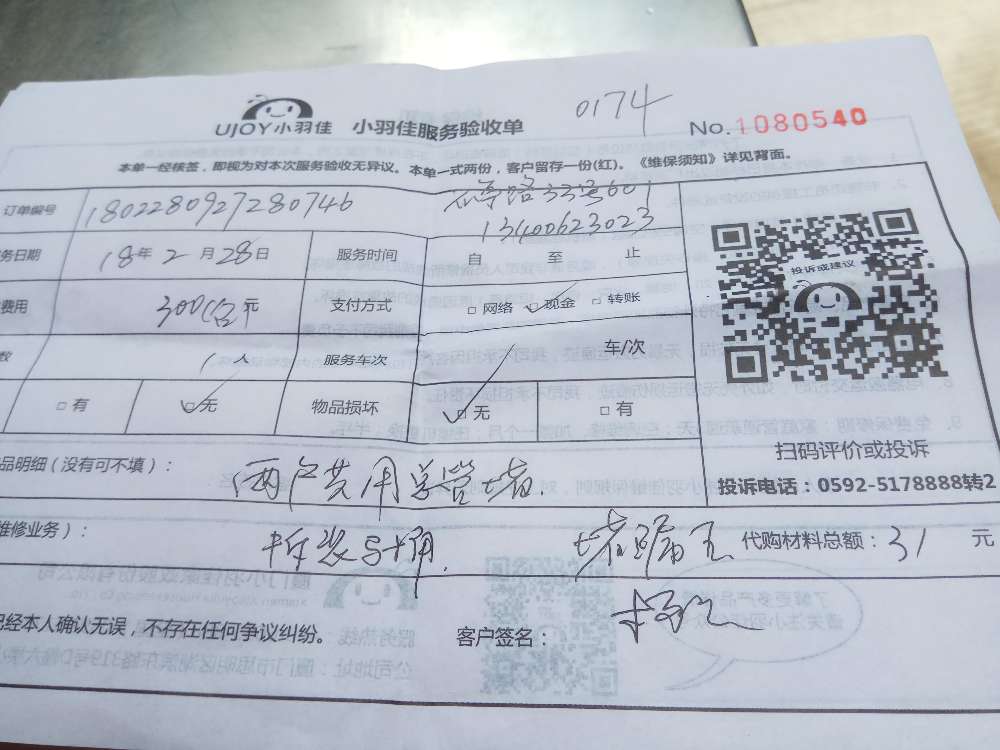 UJOY小羽佳 小羽佳服务验收单 0174 No.1080540
本单一经核签,即视为对本次服务验收无异议。本单一式两份,客户留存一份(红)。《维保须知》详见背面。
订单编号 1802280927280746 路33号601
13400623023
务日期 18年2月28日 服务时间 自 至 止
费用 300 元 支付方式 □网络 □现金 □转账
数 1人 服务车次 车/次
□有 □无 物品损坏 □无 □有
扫码评价或投诉
投诉或建议
品明细(没有可不填): 两户共用总管堵.
投诉电话:0592-5178888转2
维修业务): 拆装马桶. 堵漏王 代购材料总额:31 元
已经本人确认无误,不存在任何争议纠纷。 客户签名: